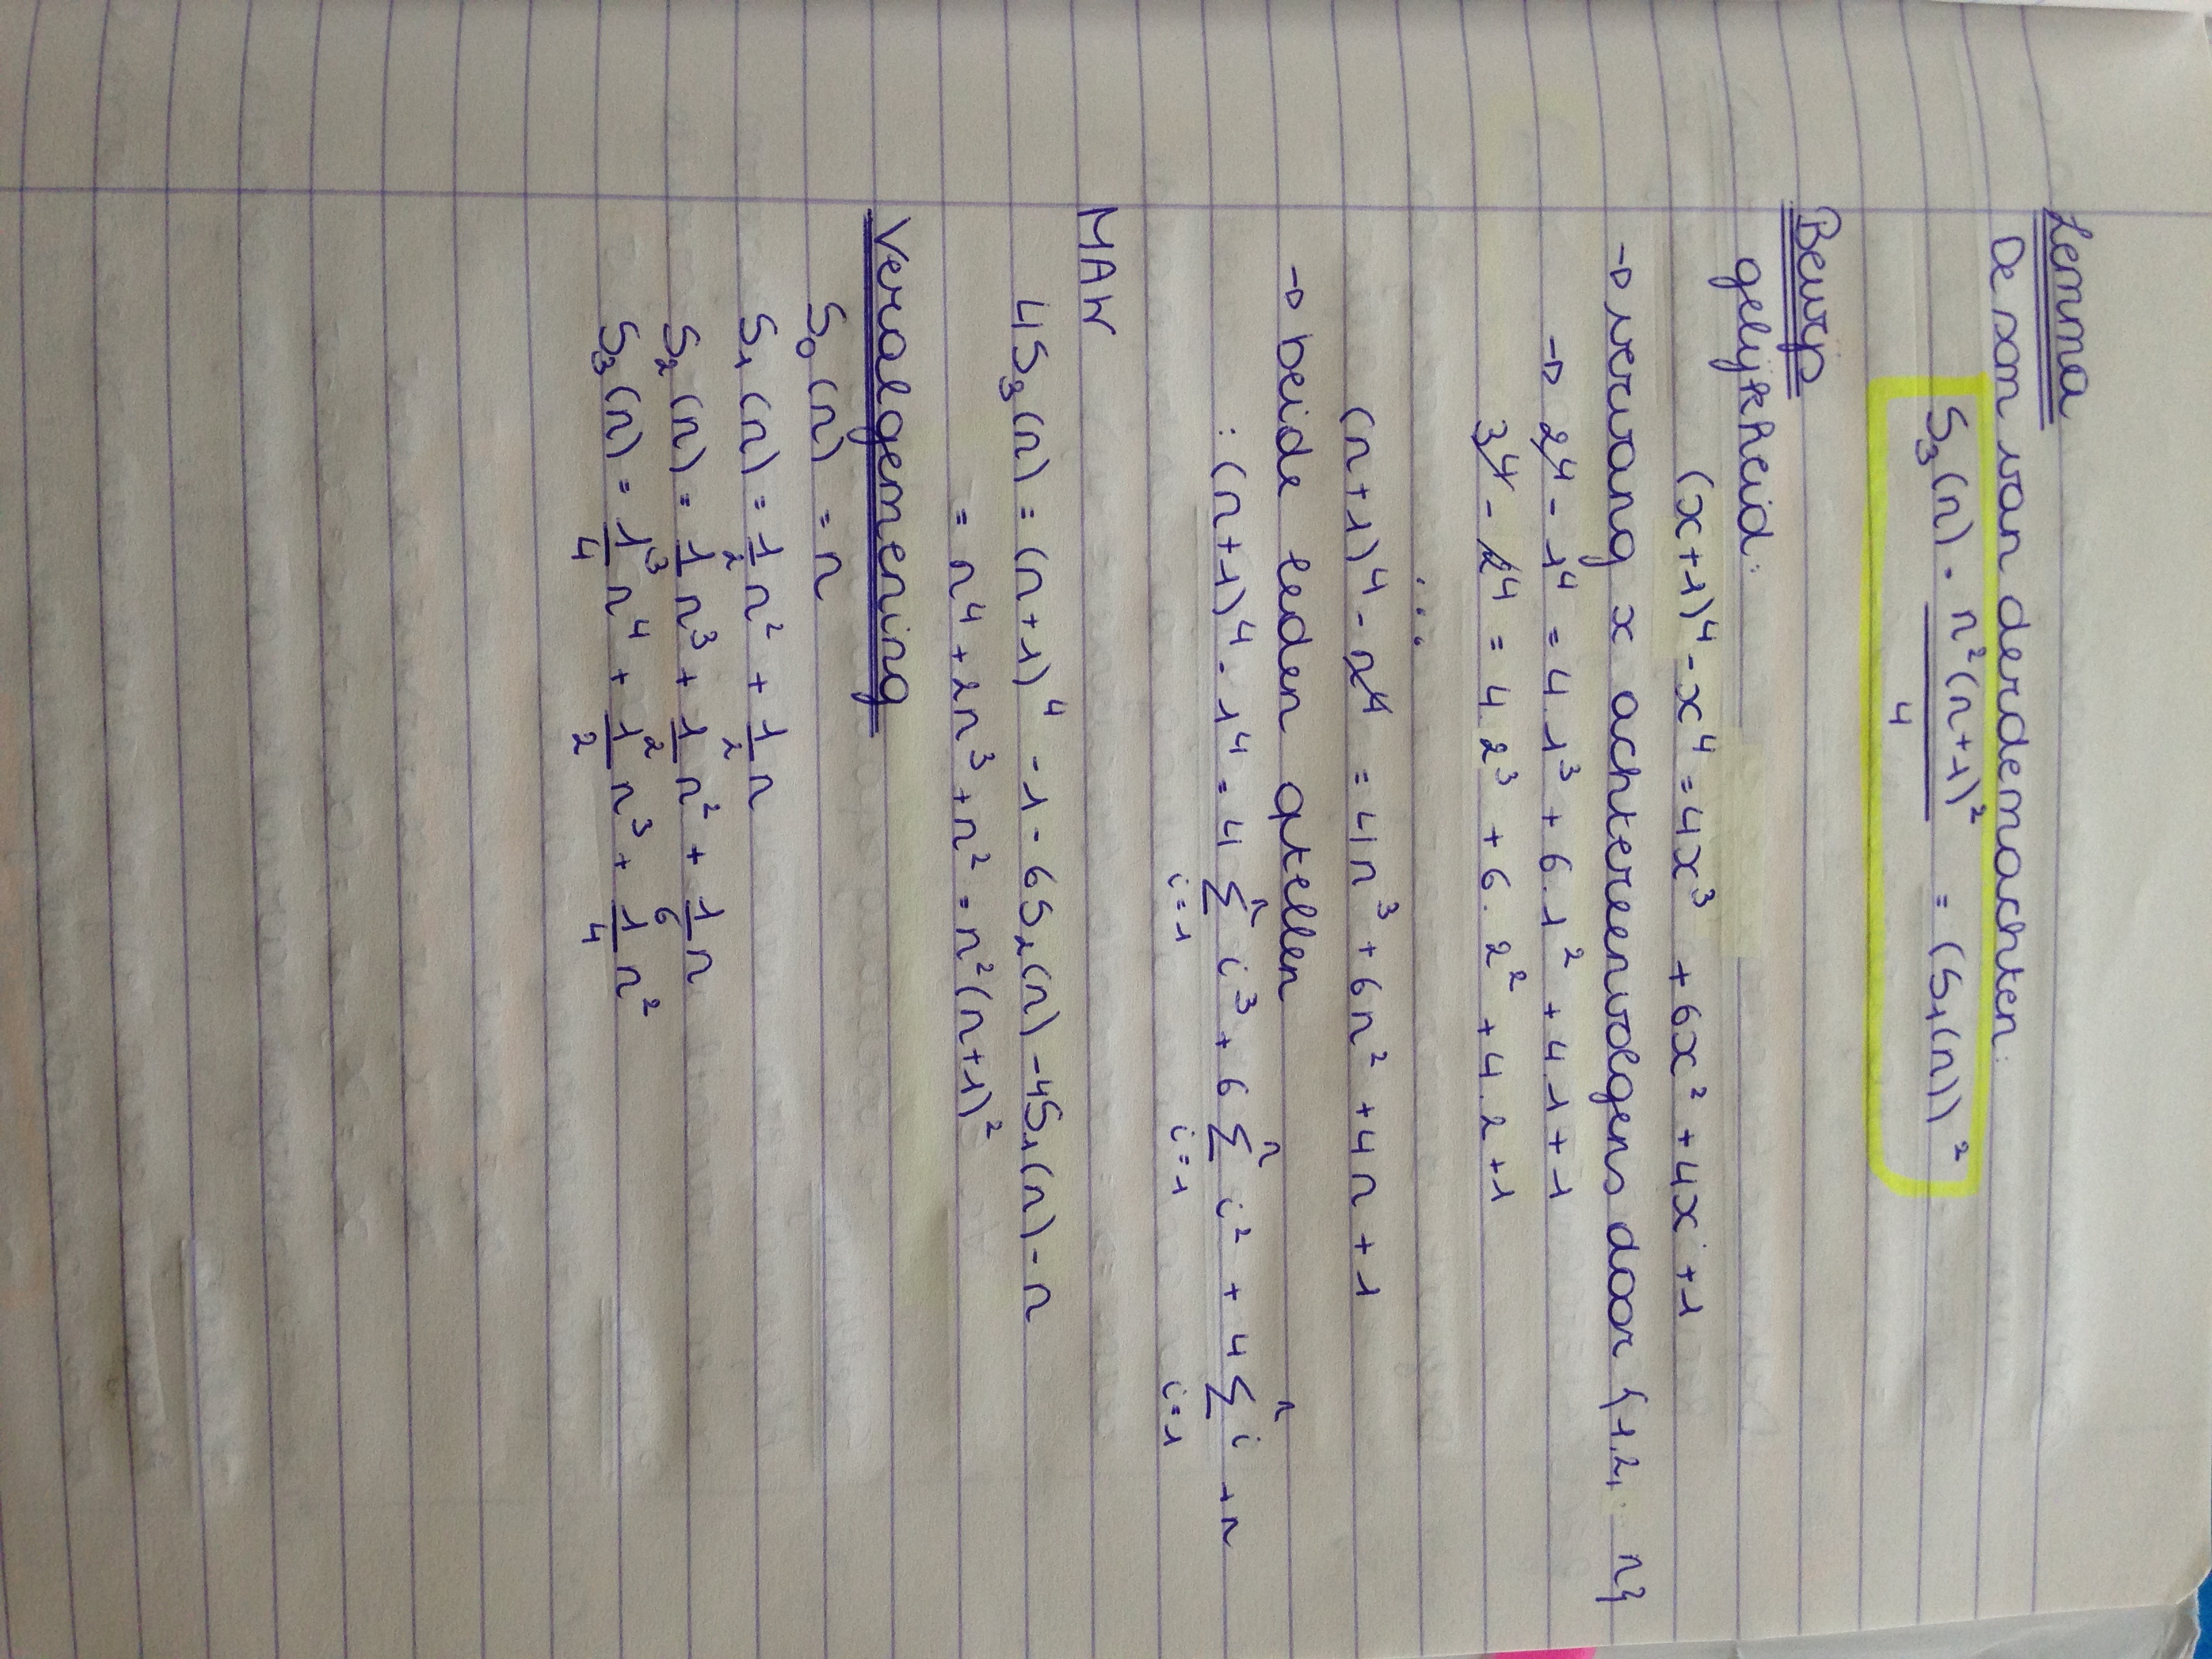 Lemma
De som van derdemachten:
S₃(n) = n²(n+1)² / 4 = (S₁(n))²
Bewijs
gelijkheid:
(x+1)⁴ - x⁴ = 4x³ + 6x² + 4x + 1
→ vervang x achtereenvolgens door {1,2, n}
→ 2⁴ - 1⁴ = 4.1³ + 6.1² + 4.1 + 1
3⁴ - 2⁴ = 4.2³ + 6.2² + 4.2 + 1
...
(n+1)⁴ - n⁴ = 4n³ + 6n² + 4n + 1
→ beide leden optellen
: (n+1)⁴ - 1⁴ = 4 Σⁿᵢ₌₁ i³ + 6 Σⁿᵢ₌₁ i² + 4 Σⁿᵢ₌₁ i + n
MAW
4S₃(n) = (n+1)⁴ - 1 - 6S₂(n) - 4S₁(n) - n
= n⁴ + 2n³ + n² = n²(n+1)²
Veralgemening
S₀(n) = n
S₁(n) = 1/2 n² + 1/2 n
S₂(n) = 1/3 n³ + 1/2 n² + 1/6 n
S₃(n) = 1/4 n⁴ + 1/2 n³ + 1/4 n²